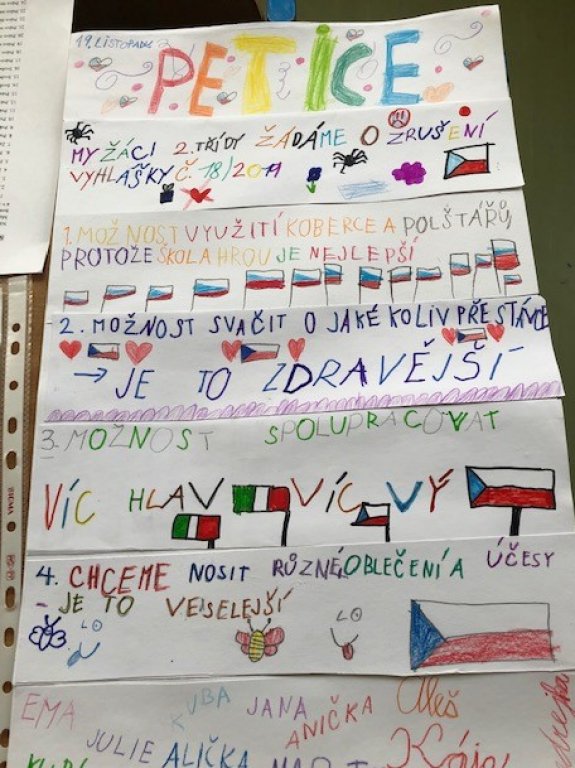 19. LISTOPADU
PETICE
MY ŽÁCI 2. TŘÍDY ŽÁDÁME O ZRUŠENÍ
VYHLÁŠKY Č. 18/2019
1. MOŽNOST VYUŽITÍ KOBERCE A POLŠTÁŘŮ,
PROTOŽE ŠKOLA HROU JE NEJLEPŠÍ
2. MOŽNOST SVAČIT O JAKÉKOLIV PŘESTÁVCE
→ JE TO ZDRAVĚJŠÍ
3. MOŽNOST SPOLUPRACOVAT
VÍC HLAV VÍC VÝ
4. CHCEME NOSIT RŮZNÉ OBLEČENÍ A ÚČESY
- JE TO VESELEJŠÍ
EMA KUBA JANA ANIČKA Aleš
JULIE ALIČKA Kája